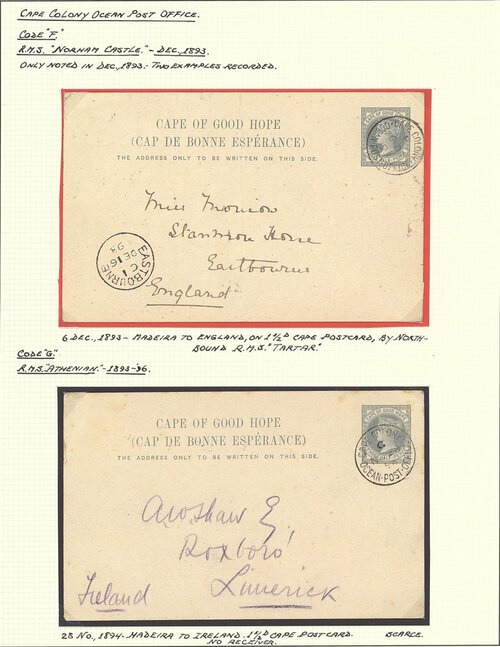 CAPE COLONY OCEAN POST OFFICE.
CODE "F."
R.M.S. "NORHAM CASTLE." - DEC, 1893.
ONLY NOTED IN DEC, 1893. - TWO EXAMPLES RECORDED.
CAPE OF GOOD HOPE
(CAP DE BONNE ESPÉRANCE)
THE ADDRESS ONLY TO BE WRITTEN ON THIS SIDE.
Miss
House
Eastbourne
England
EASTBOURNE
C 1
DE 16
93
6 DEC., 1893 - MADEIRA TO ENGLAND, ON 1½D CAPE POSTCARD, BY NORTH-
BOUND R.M.S. "TARTAR."
CODE "G."
R.M.S. "ATHENIAN." - 1893-96.
CAPE OF GOOD HOPE
(CAP DE BONNE ESPÉRANCE)
THE ADDRESS ONLY TO BE WRITTEN ON THIS SIDE.
OCEAN-POST-OFFICE
Roxboro'
Limerick
Ireland
28 NO., 1894 - MADEIRA TO IRELAND. 1½D CAPE POSTCARD. SCARCE.
NO RECEIVER.